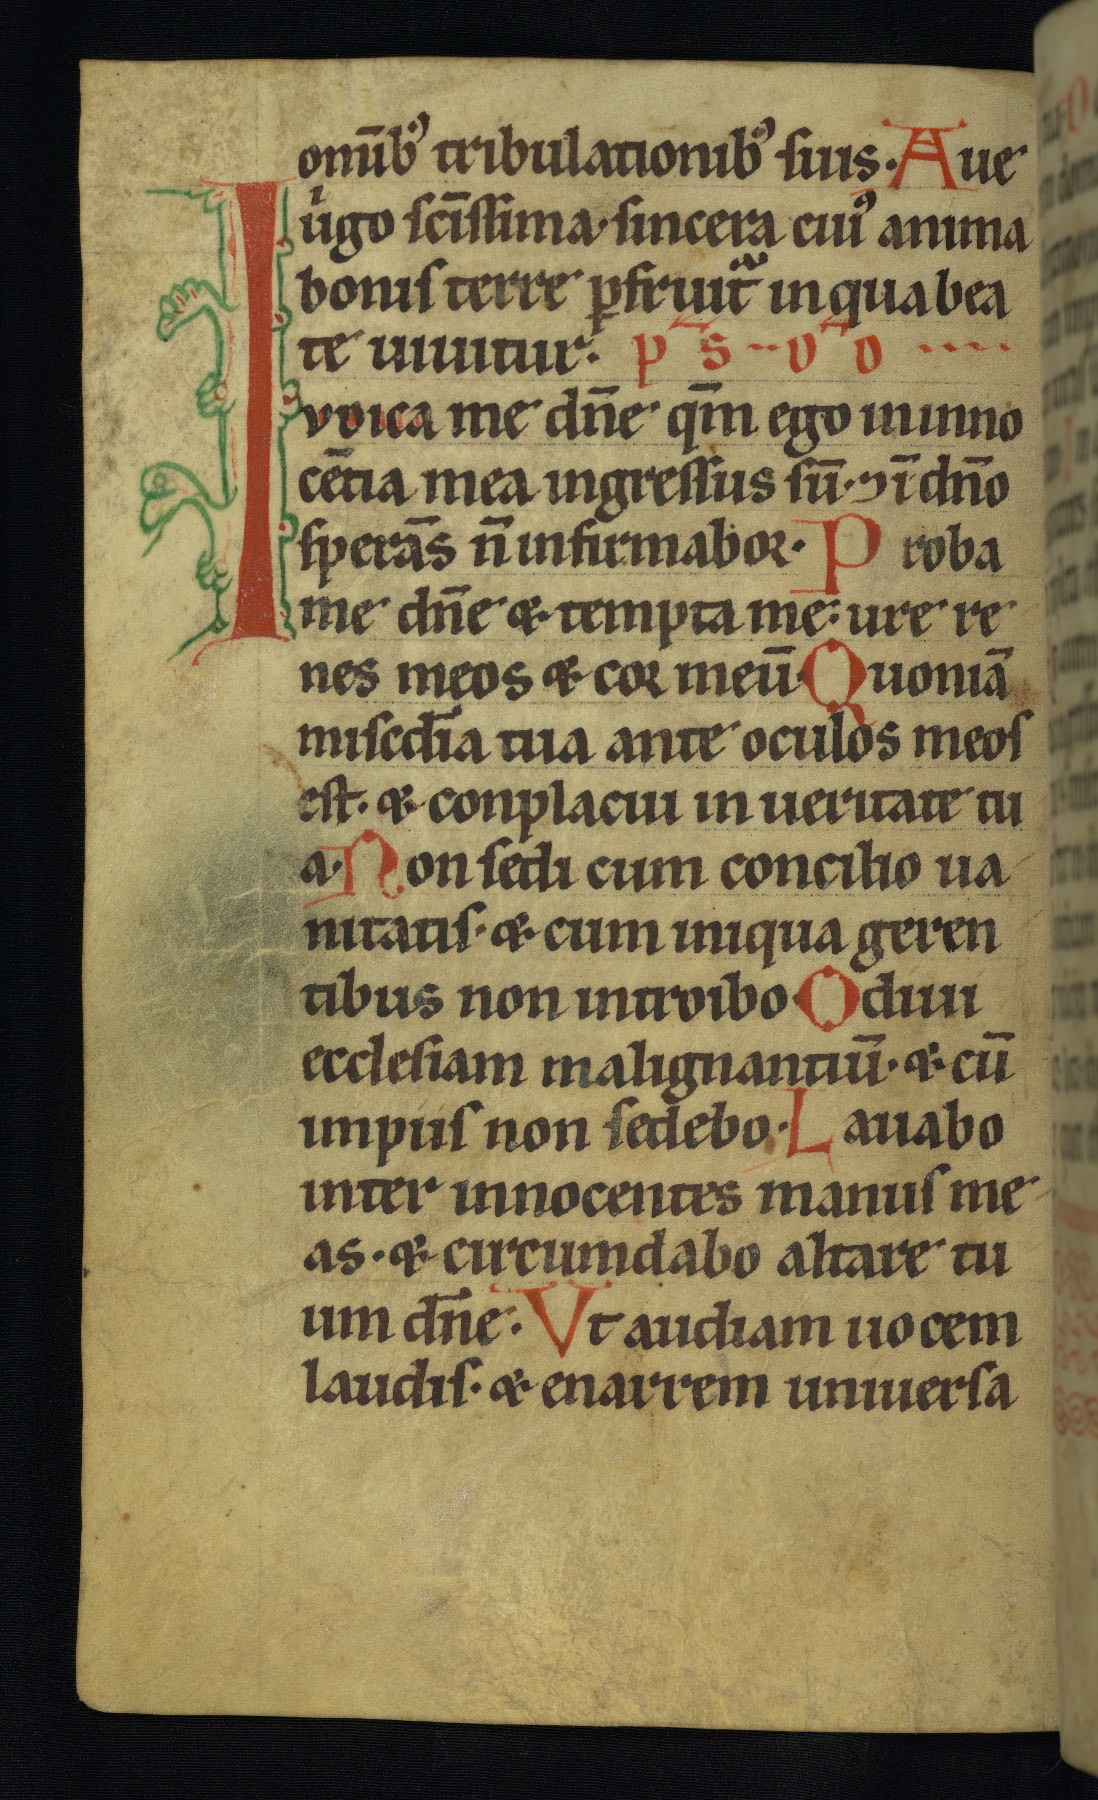 omīb᷒ tribulationib᷒ suis. Aue
uͥgo scīssima. sincera cui᷒ anima
bonis terre ꝑfruit᷑ in qua bea
te uiuitur. p s v o
Ivdica me dn̄e qm̄ ego in inno
cētia mea ingressus sū. ⁊ ī dn̄o
sperās n̄ infirmabor. Proba
me dn̄e & tempta me. ure re
nes meos & cor meū. Quoniā
miscdīa tua ante oculos meos
est. & conplacui in ueritate tu
a. Non sedi cum concilio ua
nitatis. & cum iniqua geren
tibus non introibo. Odiui
ecclesiam malignantiū. & cū
impiis non sedebo. Lauabo
inter innocentes manus me
as. & circumdabo altare tu
um dn̄e. Vt audiam uocem
laudis. & enarrem uniuersa